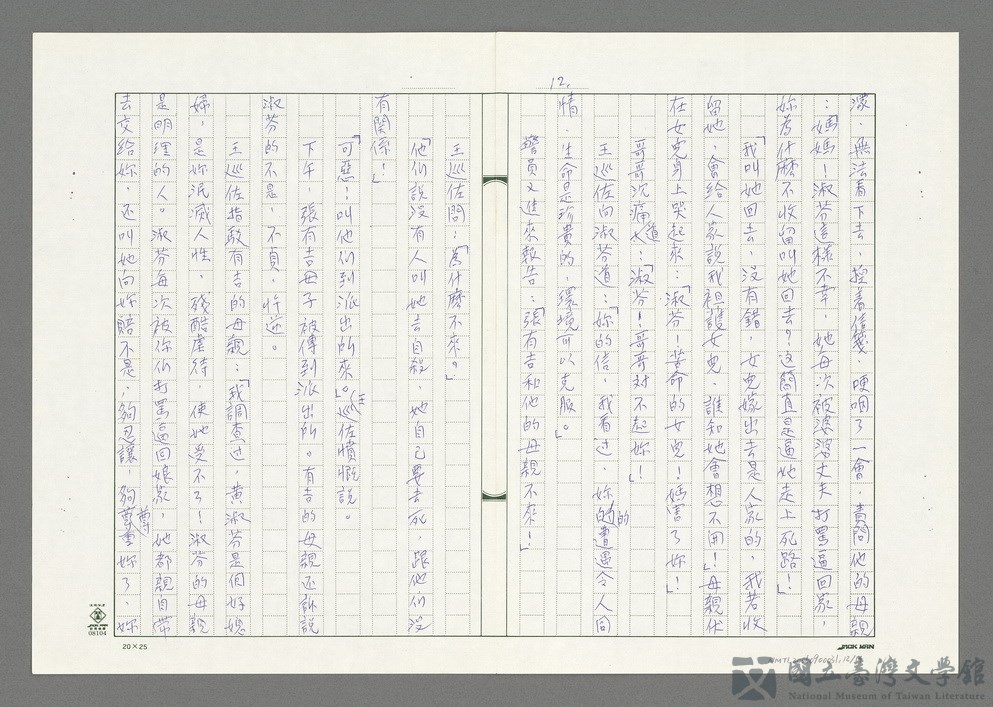 12.
濛，無法看下去，握着信箋，哽咽了一會，責問他的母親
：「媽媽！淑芬這樣不幸，她每次被婆婆丈夫打罵逼回家，
妳為什麼不收留叫她回去？這簡直是逼她走上死路！」
「我叫她回去，沒有錯，女兒嫁出去是人家的，我若收
留她，會給人家說我袒護女兒，誰知她會想不開！」母親伏
在女兒身上哭起來：「淑芬！苦命的女兒！媽害了妳！」
哥哥沉痛道：「淑芬！哥哥對不起妳！」
王巡佐向淑芬道：「妳的信，我看過，妳的遭遇令人同
情，生命是珍貴的，環境可以克服。」
警員又進來報告：「張有吉和他的母親不來！」
王巡佐問：「為什麼不來？」
「他們說沒有人叫她去自殺，她自己要去死，跟他們沒
有關係！」
「可惡！叫他們到派出所來」。王巡佐憤慨說。
下午，張有吉母子被傳到派出所。有吉的母親还訴說
淑芬的不是，不貞，忤逆。
王巡佐指敢有吉的母親：「我調查过，黃淑芬是個好媳
婦，是妳泯滅人性，殘酷虐待，使她受不了！淑芬的母親
是明理的人。淑芬每次被你們打罵逼回娘家，她都親自帶
去交給妳，还叫她向妳賠不是，夠忍讓，夠尊重妳了，妳
20×25
08104
JACK MAN
國立臺灣文學館
National Museum of Taiwan Literature